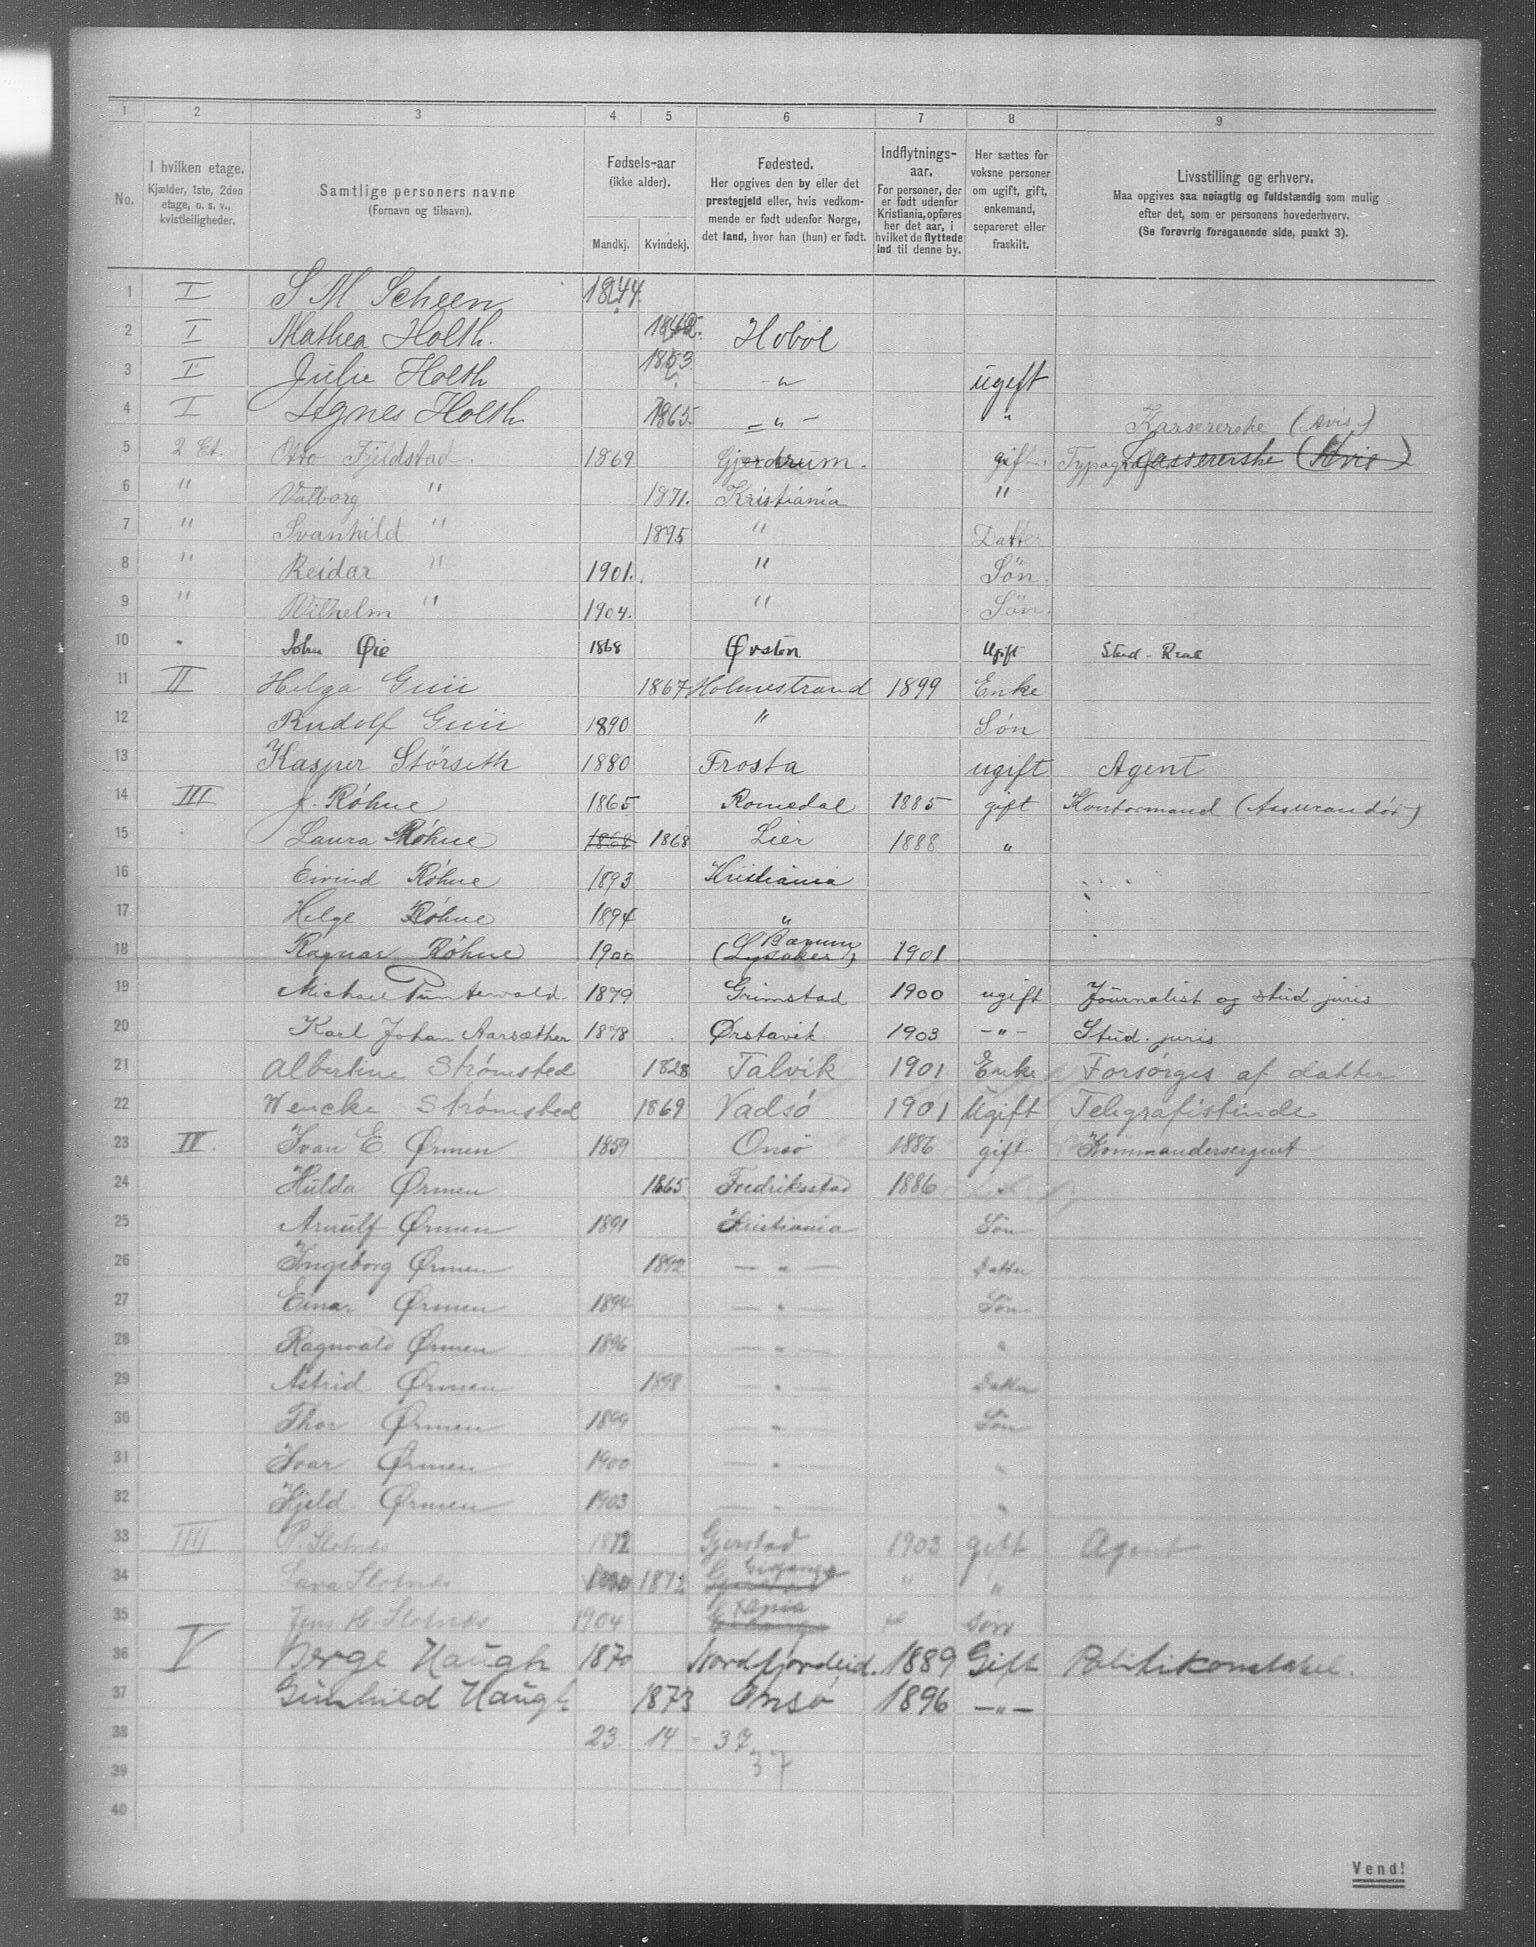 1 2 3 4 5 6 7 8 9
No.
I hvilken etage.
Kjælder, 1ste, 2den
etage, o. s. v.,
kvistleiligheder.
Samtlige personers navne
(Fornavn og tilnavn).
Fødsels-aar
(ikke alder).
Mandkj. Kvindekj.
Fødested.
Her opgives den by eller det
prestegjeld eller, hvis vedkom-
mende er født udenfor Norge,
det land, hvor han (hun) er født.
Indflytnings-
aar.
For personer, der
er født udenfor
Kristiania, opføres
her det aar, i
hvilket de flyttede
ind til denne by.
Her sættes for
voksne personer
om ugift, gift,
enkemand,
separeret eller
fraskilt.
Livsstilling og erhverv.
Maa opgives saa nøiagtig og fuldstændig som mulig
efter det, som er personens hovederhverv.
(Se forøvrig foregaaende side, punkt 3).
1 I S M Scheen 1844.
2 I Mathea Holth. 1842. Hobøl
3 I Julie Holth 1853 - " ugift
4 I Agnes Holth 1865. - " - " Kassererske (Avis)
5 2 Et. Otto Fjeldstad. 1869 Gjerdrum. gift. Typograf Kassererske (Avis)
6 " Valborg " 1871. Kristiania "
7 " Svanhild " 1895 " Datter
8 " Reidar " 1901. " Søn.
9 " Vilhelm " 1904. " Søn.
10 " John Øie 1868 Ørsten Ugift Stud. Real
11 II Helga 1867 Holmestrand 1899 Enke
12 Rudolf 1890 " Søn
13 Kasper Størseth 1880 Frosta ugift Agent
14 III J. Røhne 1865 Romedal 1885 gift Kontormand (Assurandør)
15 Laura Røhne 1868 1868 Lier 1888 "
16 Eivind Røhne 1893 Kristiania
17 Helge Røhne 1894 "
18 Ragnar Røhne 1900 Bærum (Lysaker) 1901
19 Michael Puntervald. 1879 Grimstad 1900 ugift Journalist og stud. juris
20 Karl Johan Aarsæther 1878 Ørstavik 1903 - " - Stud. juris
21 Albertine Strømsted 1828 Talvik 1901 Enke Forsørges af datter
22 Wencke Strømsted 1869 Vadsø 1901 Ugift Telegrafistinde
23 IV. Ivan E Ørmen 1859 Onsø 1886 gift Kommandersergent
24 Hulda Ørmen 1865 Fredriksstad 1886
25 Arnulf Ørmen 1891 Kristiania Søn
26 Ingeborg Ørmen 1892 — " — Datter
27 Einar Ørmen 1894 — " — Søn
28 Ragnvald Ørmen 1896 — " — "
29 Astrid Ørmen 1898 — " — Datter
30 Thor Ørmen 1899 — " — Søn
31 Ivar Ørmen 1900 — " — "
32 Kjeld Ørmen 1903 — " — "
33 IIII P. Slotnæs 1872 Gjerstad 1903 gift Agent
34 Lava Slotnæs 1872 " "
35 Jens H. Slotnæs 1904 Xania Søn
36 V Berge Haugh 1870 Nordfjordeid. 1889 Gift Politikonstabel.
37 Gunhild Haugh 1873 Onsø 1896 — " —
38 23. 14 - 37
39 37
40
Vend!